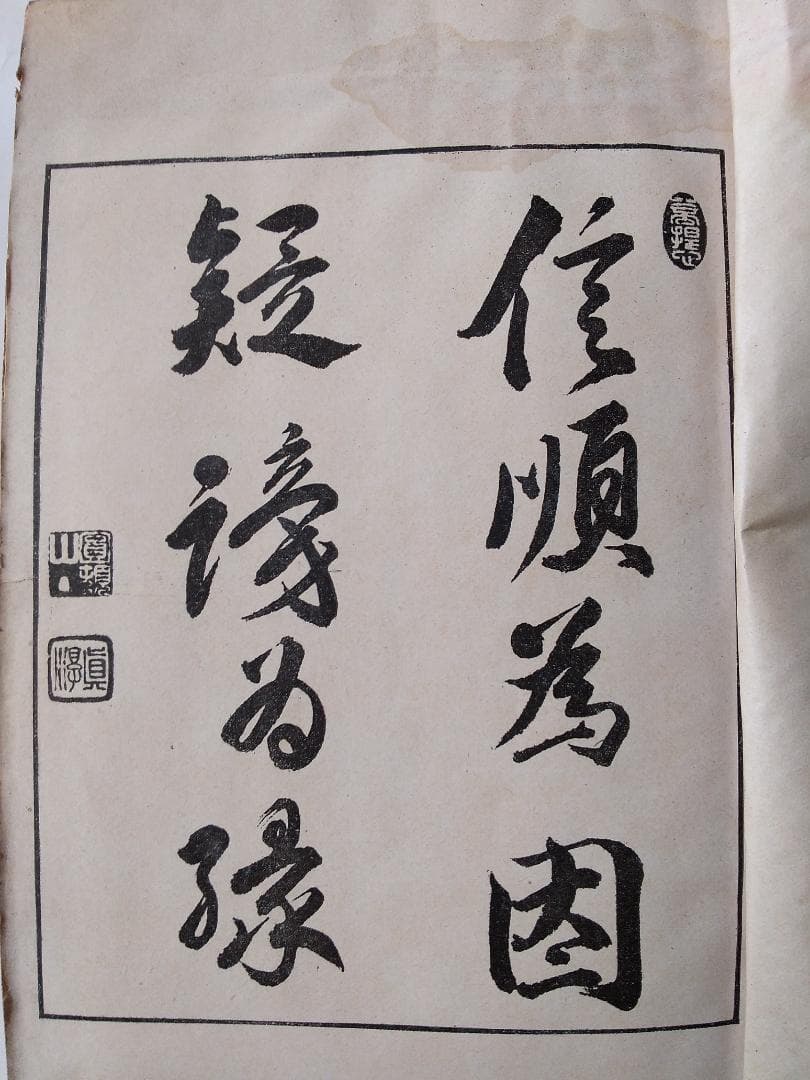 信順為因
疑謗為縁